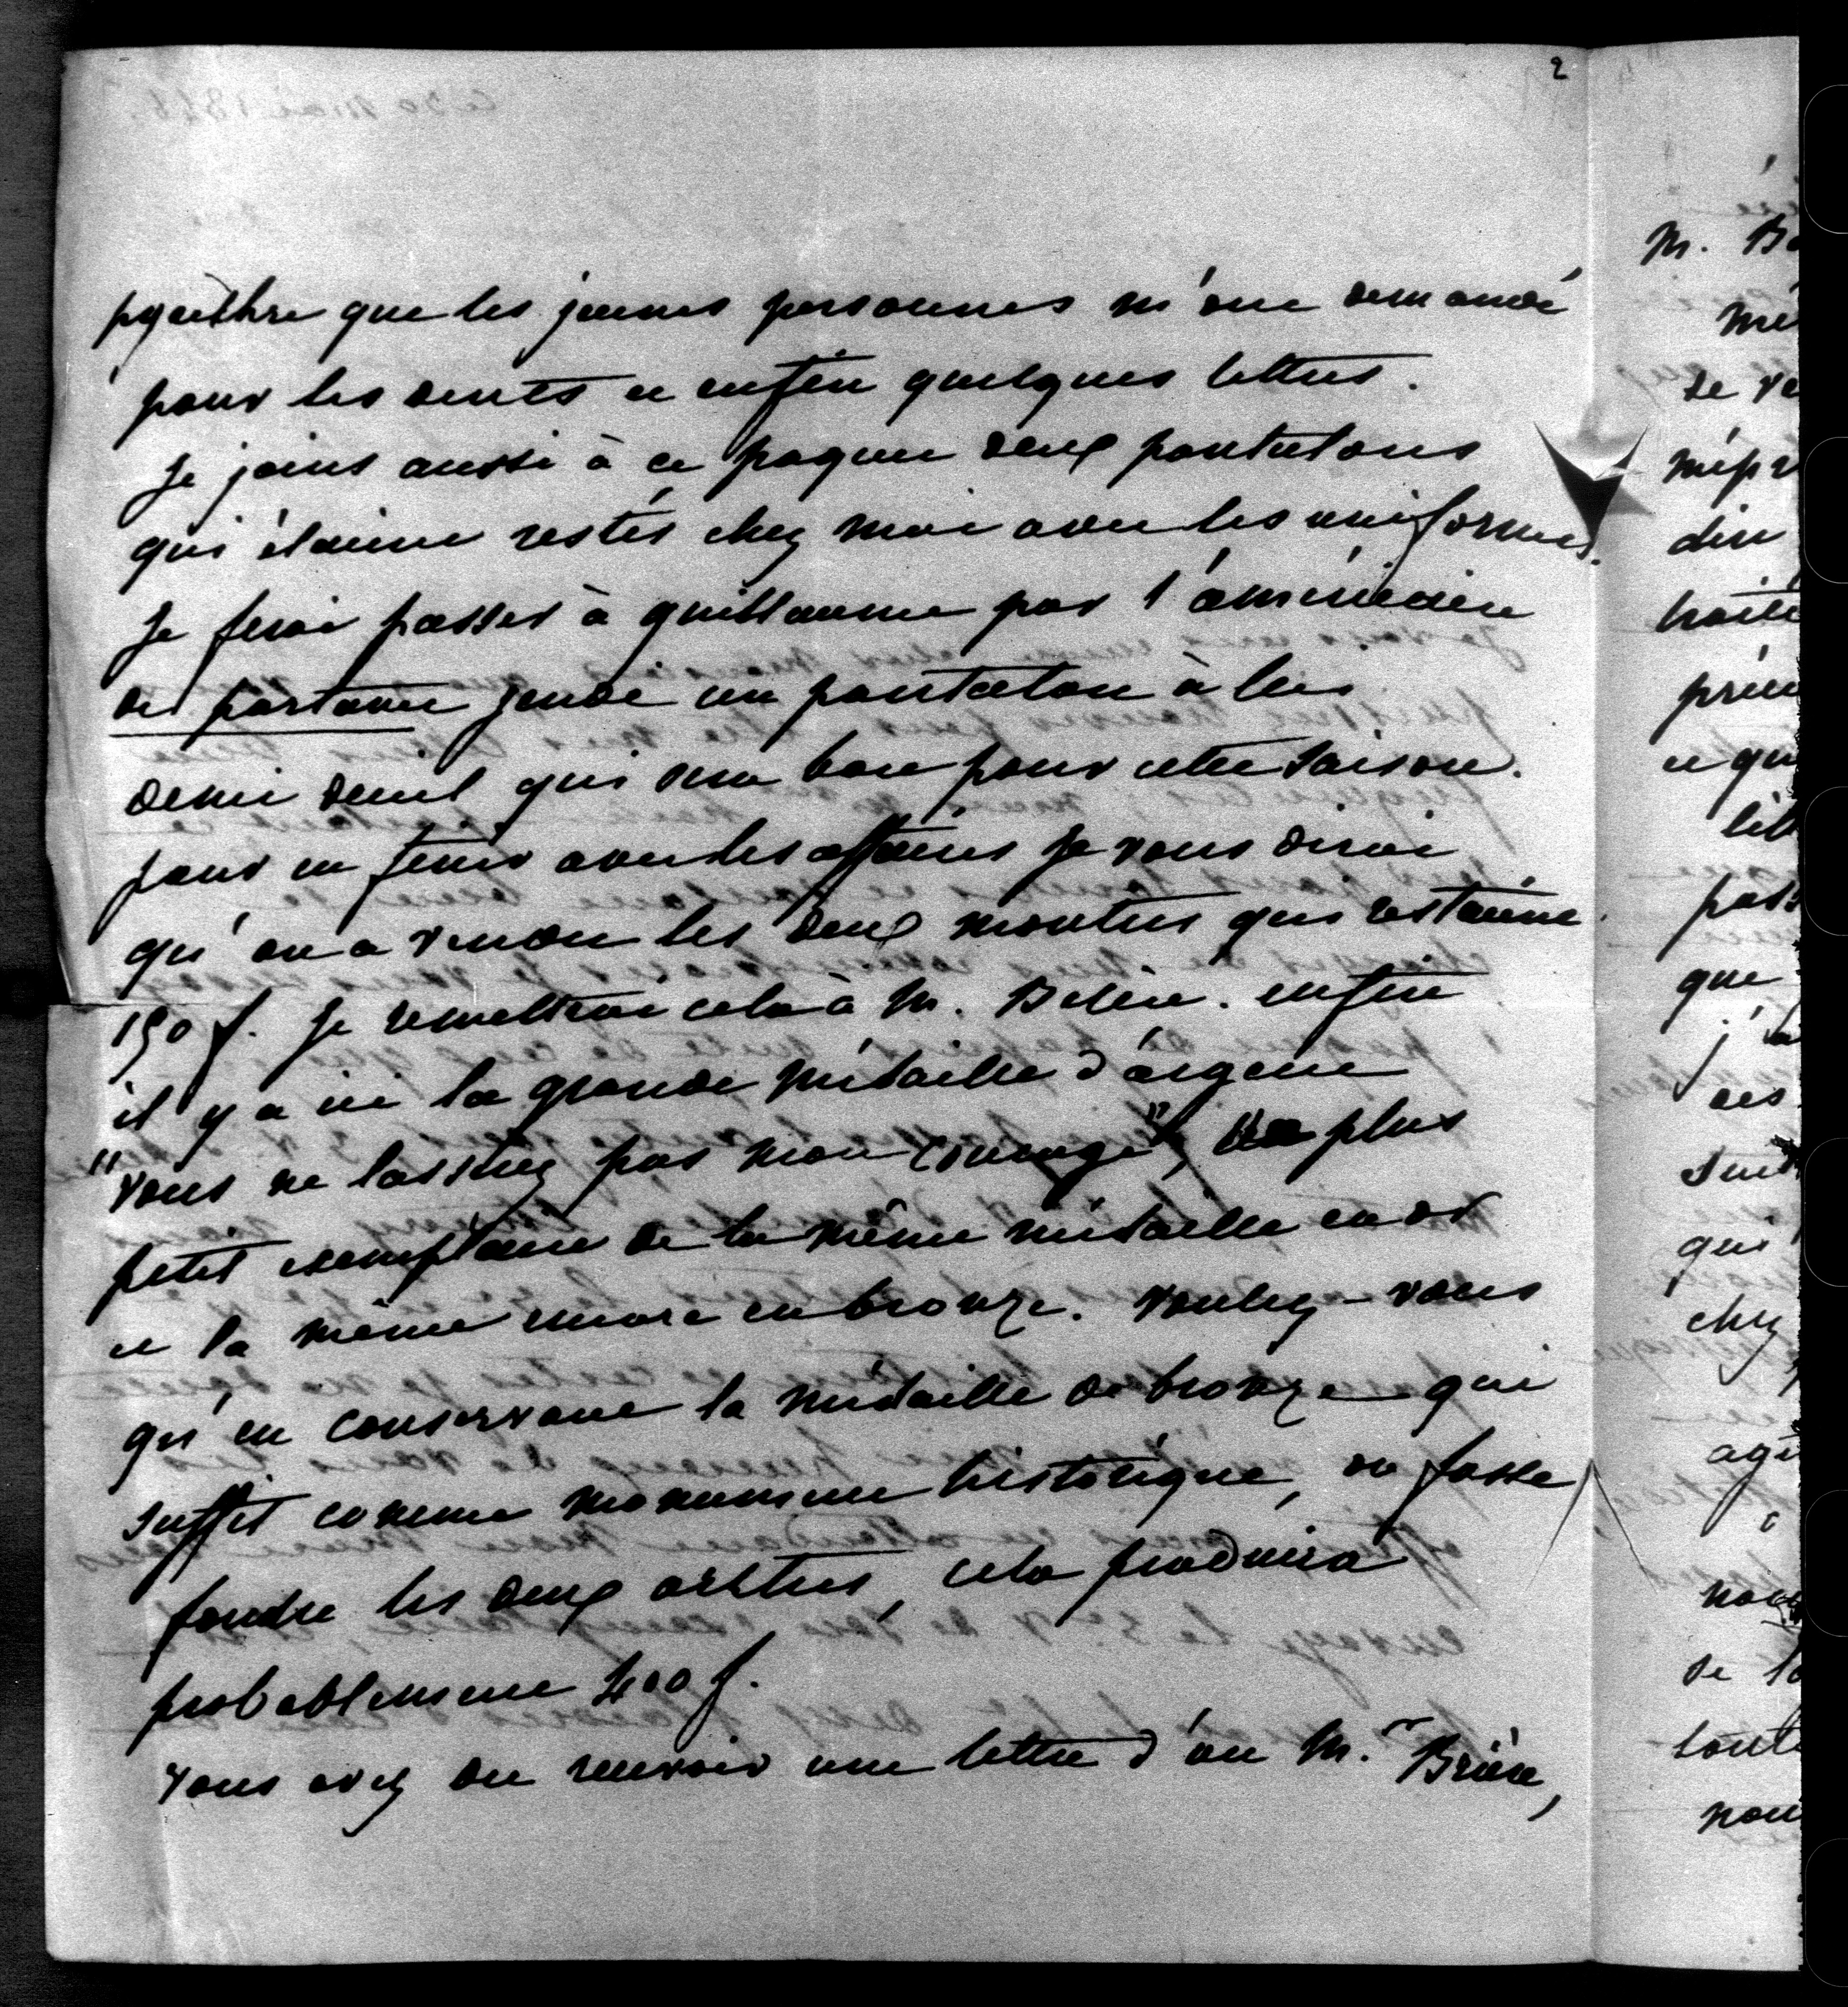 2
pyrèthre que les jeunes personnes m'ont demandé
pour les dents et enfin quelques lettres.
Je joins aussi à ce paquet deux pantalons
qui étaient restés chez moi avec les uniformes.
Je ferai passer à guillaume par l'américaine
de partance jeudi un pantalon à lui
demi deuil qui sera bon pour cette saison.
pour en finir avec les affaires je vous dirai
qu'on a vendu les deux montres qui restaient
150 f. Je remettrai cela à M. Belin. enfin
il y a ici la grande médaille d'argent
"vous ne lasserez pas mon courage", plus
petit exemplaire de la même médaille en or
et la même encore en bronze. voulez-vous
qu'en conservant la médaille de bronze qui
suffit comme monument historique, on fasse
fondre les deux autres, cela produira
probablement 400 f.
vous avez du recevoir une lettre d'un M.r Brière,
M.
de
mépr
dire
que
qui
chez